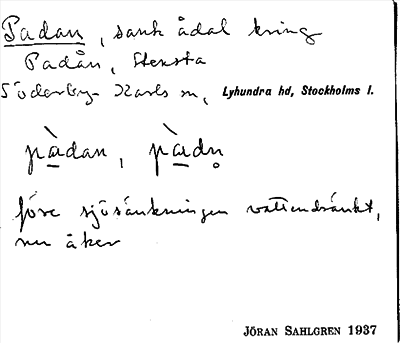 Padan, sank ådal kring
Padån, Stensta
Söderby-Karls sn, Lyhundra hd, Stockholms l.
pàdan, pàdn̥
före sjösänkningen vattendränkt,
nu åker
JÖRAN SAHLGREN 1937